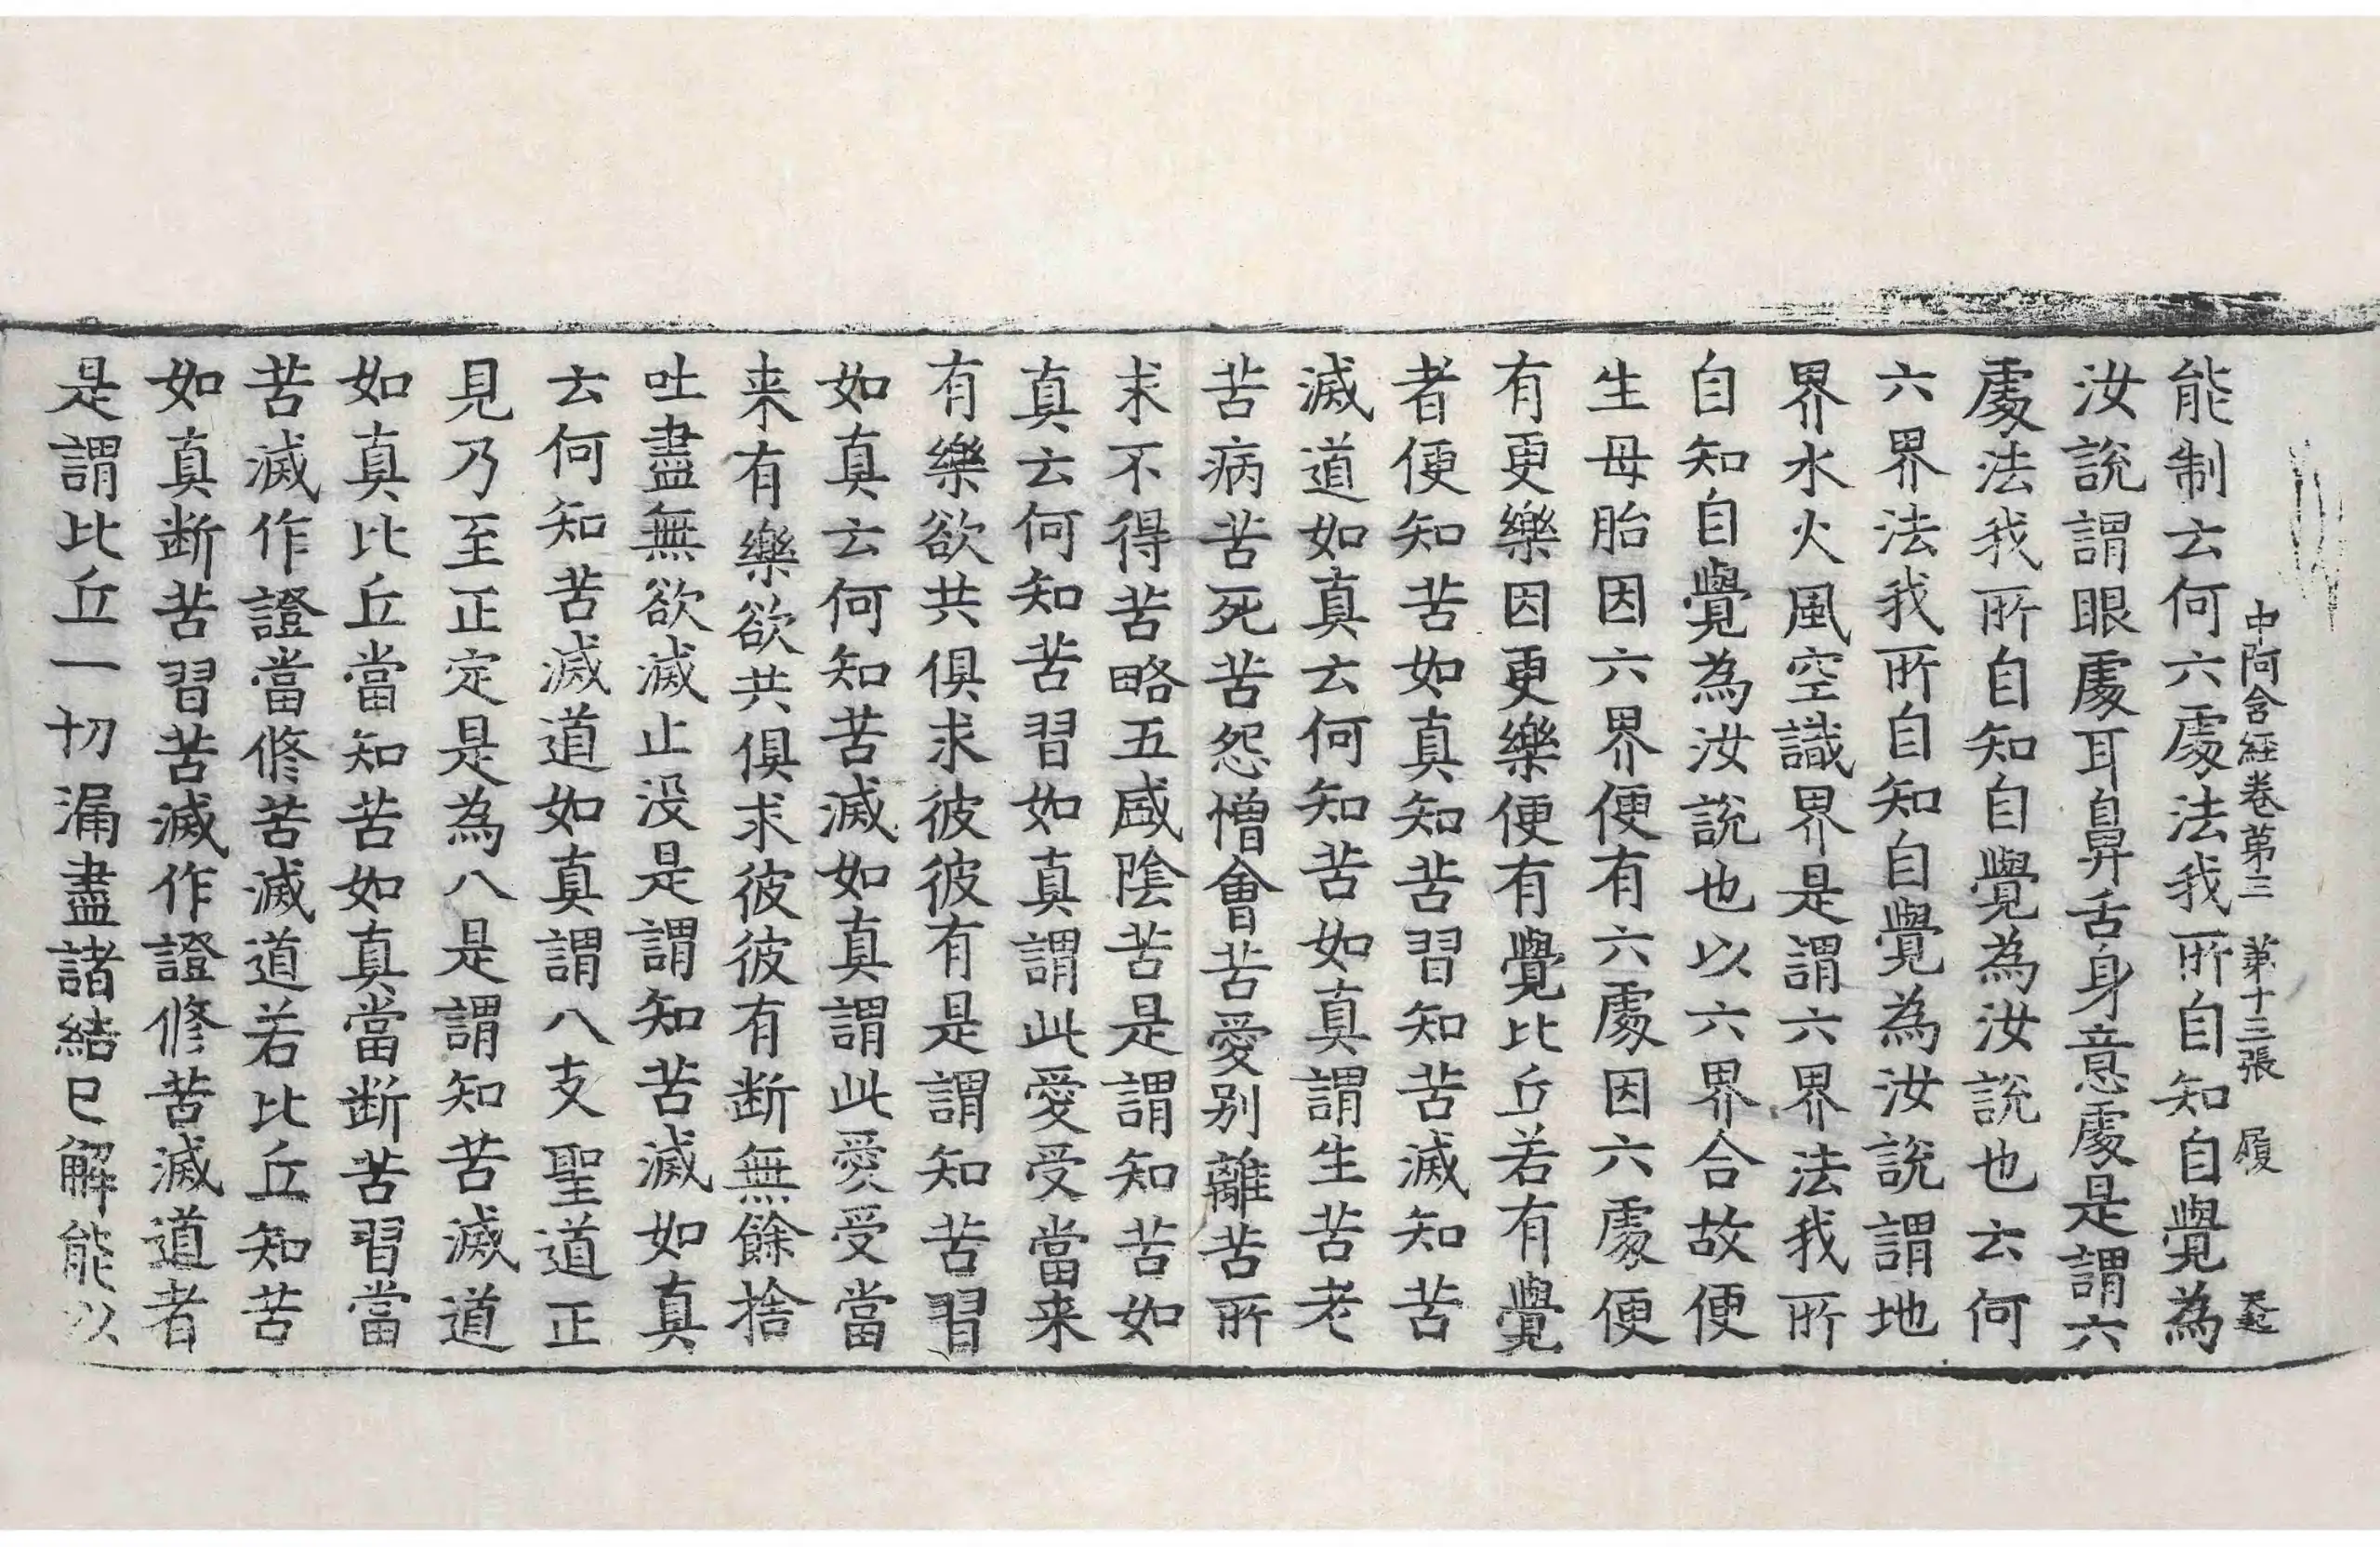 中阿含經卷第三　第十三張　履
能制云何六處法我所自知自覺為
汝說謂眼處耳鼻舌身意處是謂六
處法我所自知自覺為汝說也云何
六界法我所自知自覺為汝說謂地
界水火風空識界是謂六界法我所
自知自覺為汝說也以六界合故便
生母胎因六界便有六處因六處便
有更樂因更樂便有覺比丘若有覺
者便知苦如真知苦習知苦滅知苦
滅道如真云何知苦如真謂生苦老
苦病苦死苦怨憎會苦愛別離苦所
求不得苦略五盛陰苦是謂知苦如
真云何知苦習如真謂此愛受當来
有樂欲共俱求彼彼有是謂知苦習
如真云何知苦滅如真謂此愛受當
来有樂欲共俱求彼彼有断無餘捨
吐盡無欲滅止没是謂知苦滅如真
云何知苦滅道如真謂八支聖道正
見乃至正定是為八是謂知苦滅道
如真比丘當知苦如真當断苦習當
苦滅作證當修苦滅道若比丘知苦
如真断苦習苦滅作證修苦滅道者
是謂比丘一切漏盡諸結已解能以